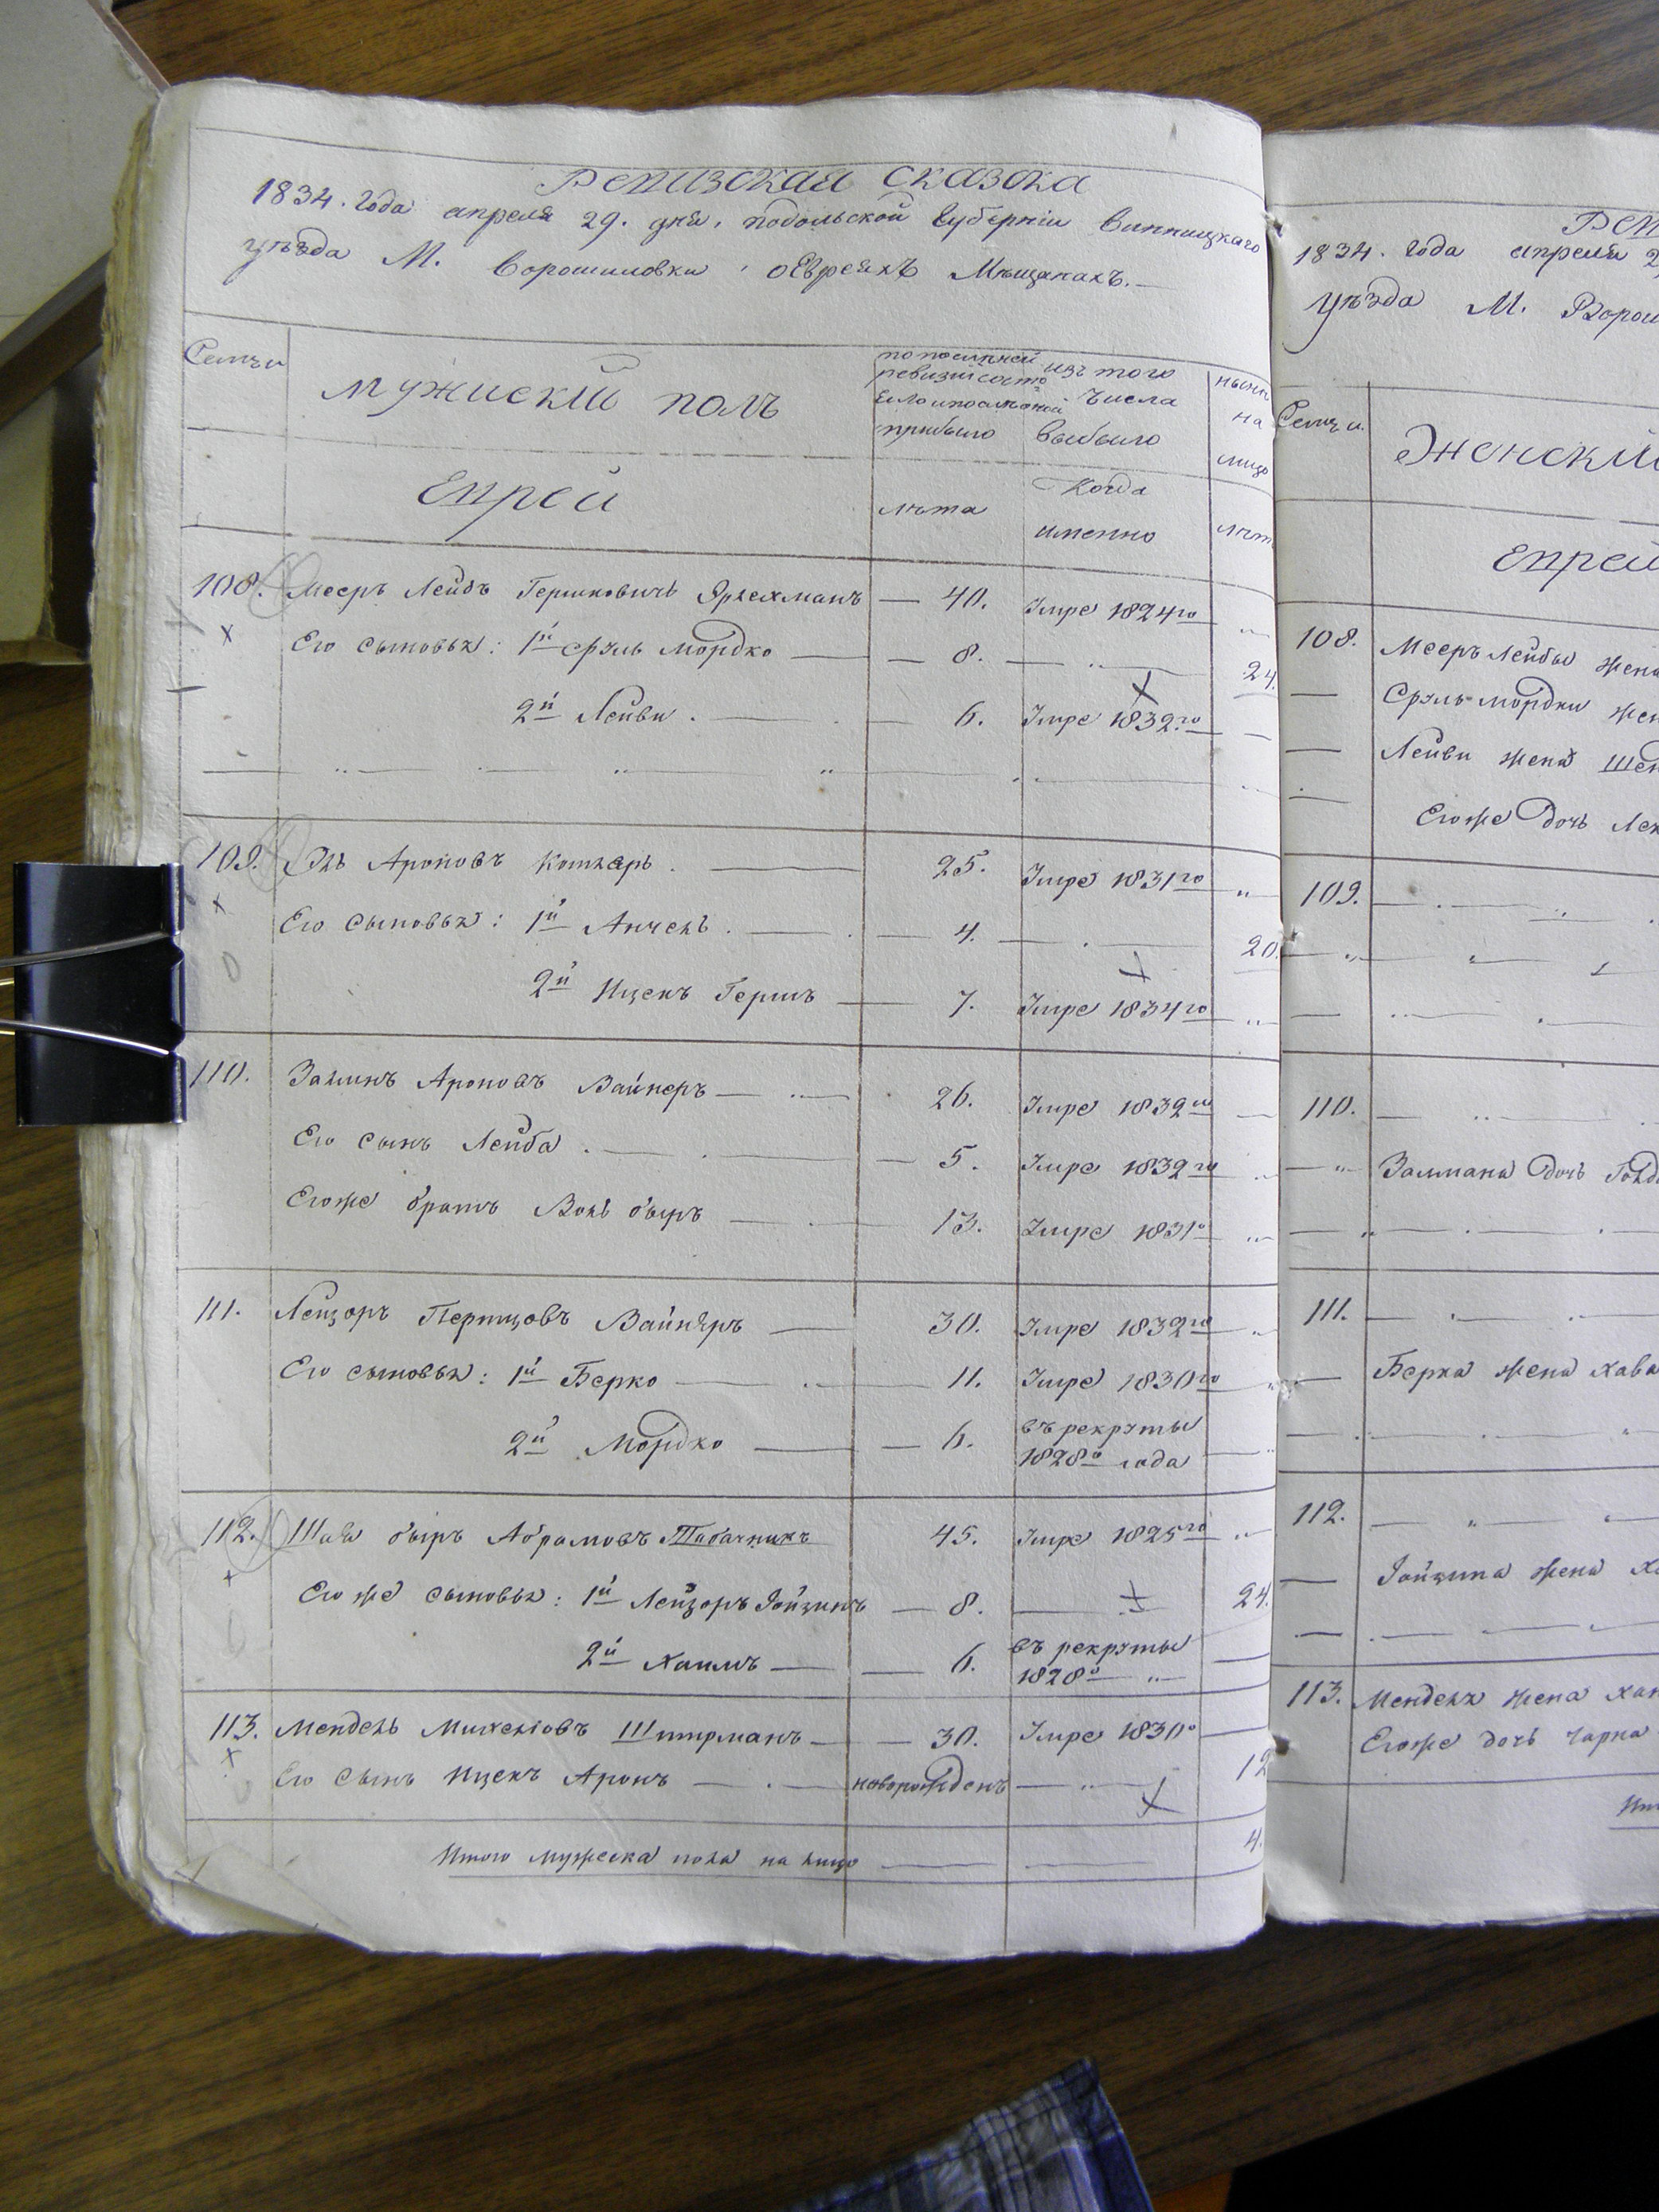 Ревизская сказка
1834. года апреля 29. дня, подольской Губерніи Винницкаго
уѣзда М. Ворошиловки, оЕвреяхЪ Мѣщанахъ.
Семьи
мужискій полъ
по послѣдней ревизіи состояло и после оной прибыло
изъ того числа выбыло
нынѣ на лицо
Еврей
лѣта
Когда именно
лѣт
108. Меерь Лейбъ Гершковичь — 40. Умре 1824го
Его сыновья: 1й Сруль мордко — 8. — 24.
2й Лейви. — 6. Умре 1832го —
109. Ароновъ Котляръ. — 25. Умре 1831го "
Его сыновья: 1й Анчель. — 4. — 20.
2й Ицекъ Гершъ — 7. Умре 1834го "
110. Залманъ Ароновъ Вайнеръ — 26. Умре 1832го —
Его сынъ Лейба. — 5. Умре 1832го
Егоже братъ Воль быръ — 13. Умре 1831о "
111. Лейзоръ Перецовъ Вайнеръ — 30. Умре 1832го "
Его сыновья: 1й Берко — 11. Умре 1830го "
2й Мордко — 6. въ рекруты 1828о года —
112. Шая быръ Абрамовъ Табачникъ 45. Умре 1825го "
Его же сыновья: 1й Лейзоръ Іойзипъ — 8. — 24.
2й Хаимъ — 6. въ рекруты 1828о " —
113. Мендель Михелювъ Штирманъ — 30. Умре 1830о —
Его сынъ Ицекъ Аронъ — новорожденъ — " 12
Итого мужеска пола на лицо — 4.
1834. года апреля 2
уѣзда М. Ворош
Семьи.
Женскій
еврей
108. Меерь Лейбы жена
— Сруль мордки жен
— Лейви жена Шей
Егоже дочь Лея
109. —
110. —
— " Залмана дочь Голд
111. —
— Берка жена хава
112. —
— Іойзипа жена Ха
113. Менделя жена хан
Егоже дочь чарна